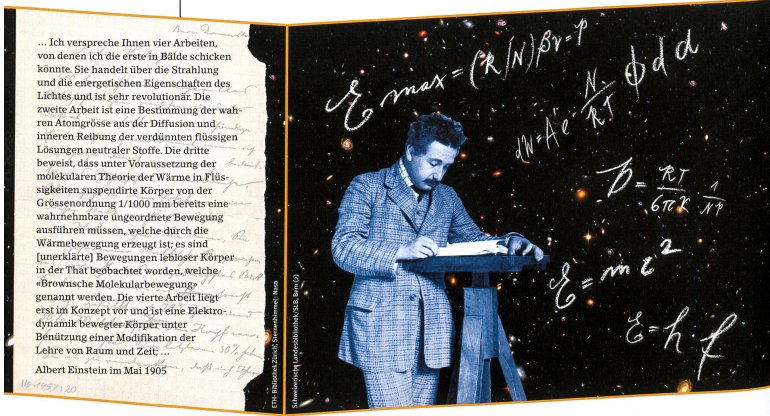 ... Ich verspreche Ihnen vier Arbeiten,
von denen ich die erste in Bälde schicken
könnte. Sie handelt über die Strahlung
und die energetischen Eigenschaften des
Lichtes und ist sehr revolutionär. Die
zweite Arbeit ist eine Bestimmung der wah-
ren Atomgrösse aus der Diffusion und
inneren Reibung der verdünnten flüssigen
Lösungen neutraler Stoffe. Die dritte
beweist, dass unter Voraussetzung der
molekularen Theorie der Wärme in Flüs-
sigkeiten suspendirte Körper von der
Grössenordnung 1/1000 mm bereits eine
wahrnehmbare ungeordnete Bewegung
ausführen müssen, welche durch die
Wärmebewegung erzeugt ist; es sind
[unerklärte] Bewegungen lebloser Körper
in der That beobachtet worden, welche
«Brownsche Molekularbewegung»
genannt werden. Die vierte Arbeit liegt
erst im Konzept vor und ist eine Elektro-
dynamik bewegter Körper unter
Benützung einer Modifikation der
Lehre von Raum und Zeit; ...
Albert Einstein im Mai 1905
ETH-Bibliothek Zürich; Sternenhimmel: Nasa
Schweizerische Landesbibliothek/SLB, Bern (2)
E max = (R/N) βν = P
dW = A e - N/RT Φ d d
D = RT/6πk 1/NP
E = m c²
E = h f